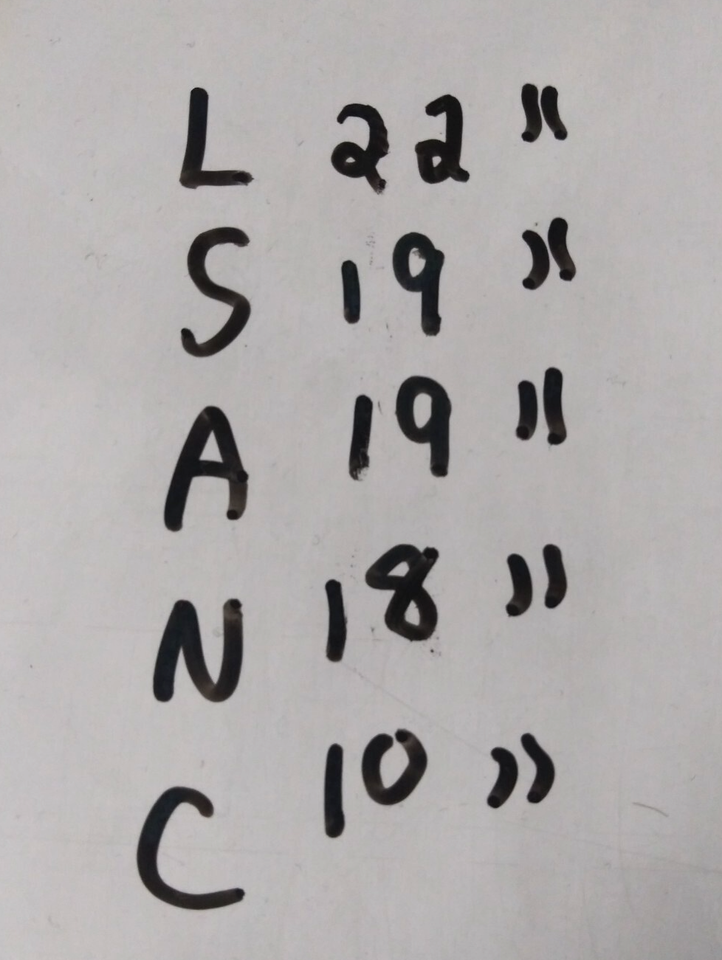 L 22"
S 19"
A 19"
N 18"
C 10"